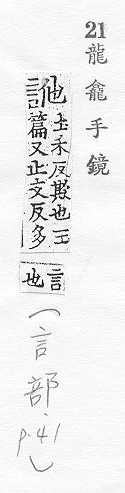 21龍龕手鏡
訑土禾反欺也玉
篇又止支反多
言也
(言部.p.41)